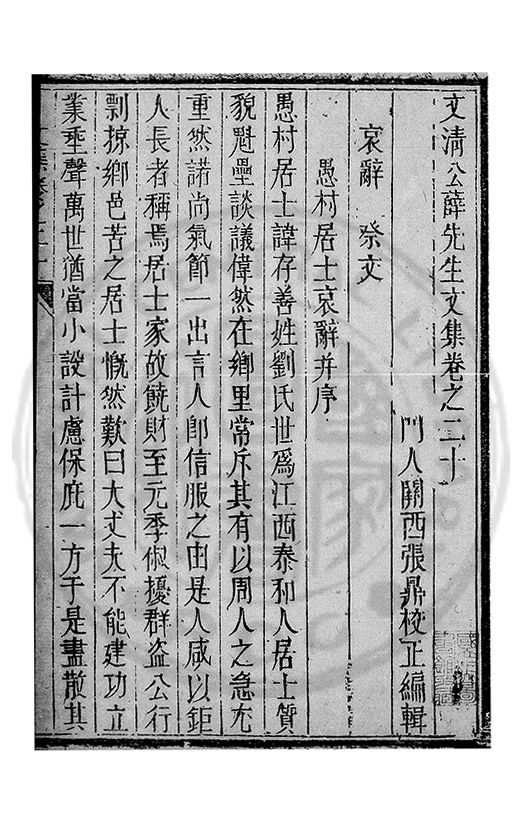 文清公薛先生文集卷之二十
門人關西張鼎校正編輯
哀辭 祭文
愚村居士哀辭并序
愚村居士諱存善姓劉氏世爲江西泰和人居士質
貌魁壘談議偉然在鄉里常斥其有以周人之急尤
重然諾尚氣節一出言人卽信服之由是人咸以鉅
人長者稱焉居士家故饒財至元季俶擾群盗公行
剽掠鄉邑苦之居士慨然歎曰大丈夫不能建功立
業垂聲萬世猶當小設計慮保庇一方于是盡散其